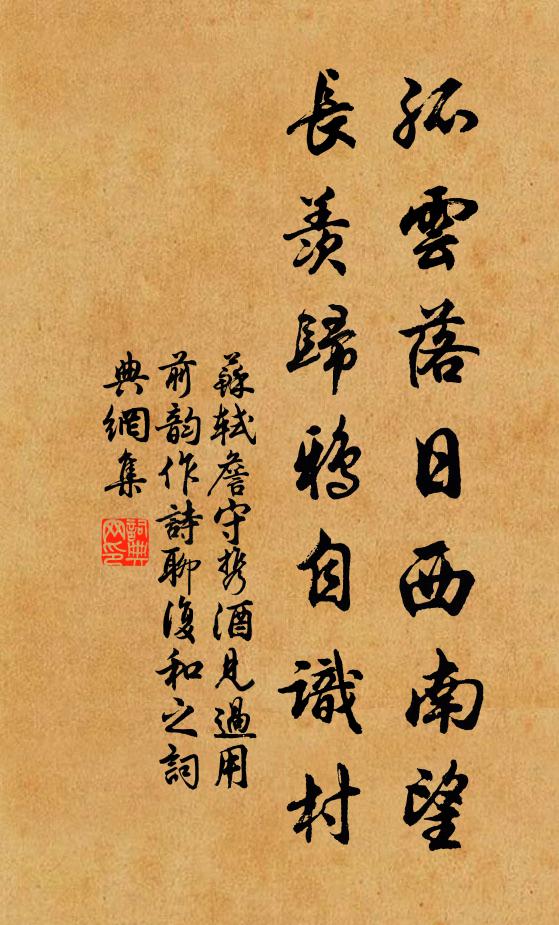 孤雲落日西南望
長羨歸鴉自識村
蘇軾詹守携酒見過用
前韵作詩聊復和之詞
典網集
詞典
网印